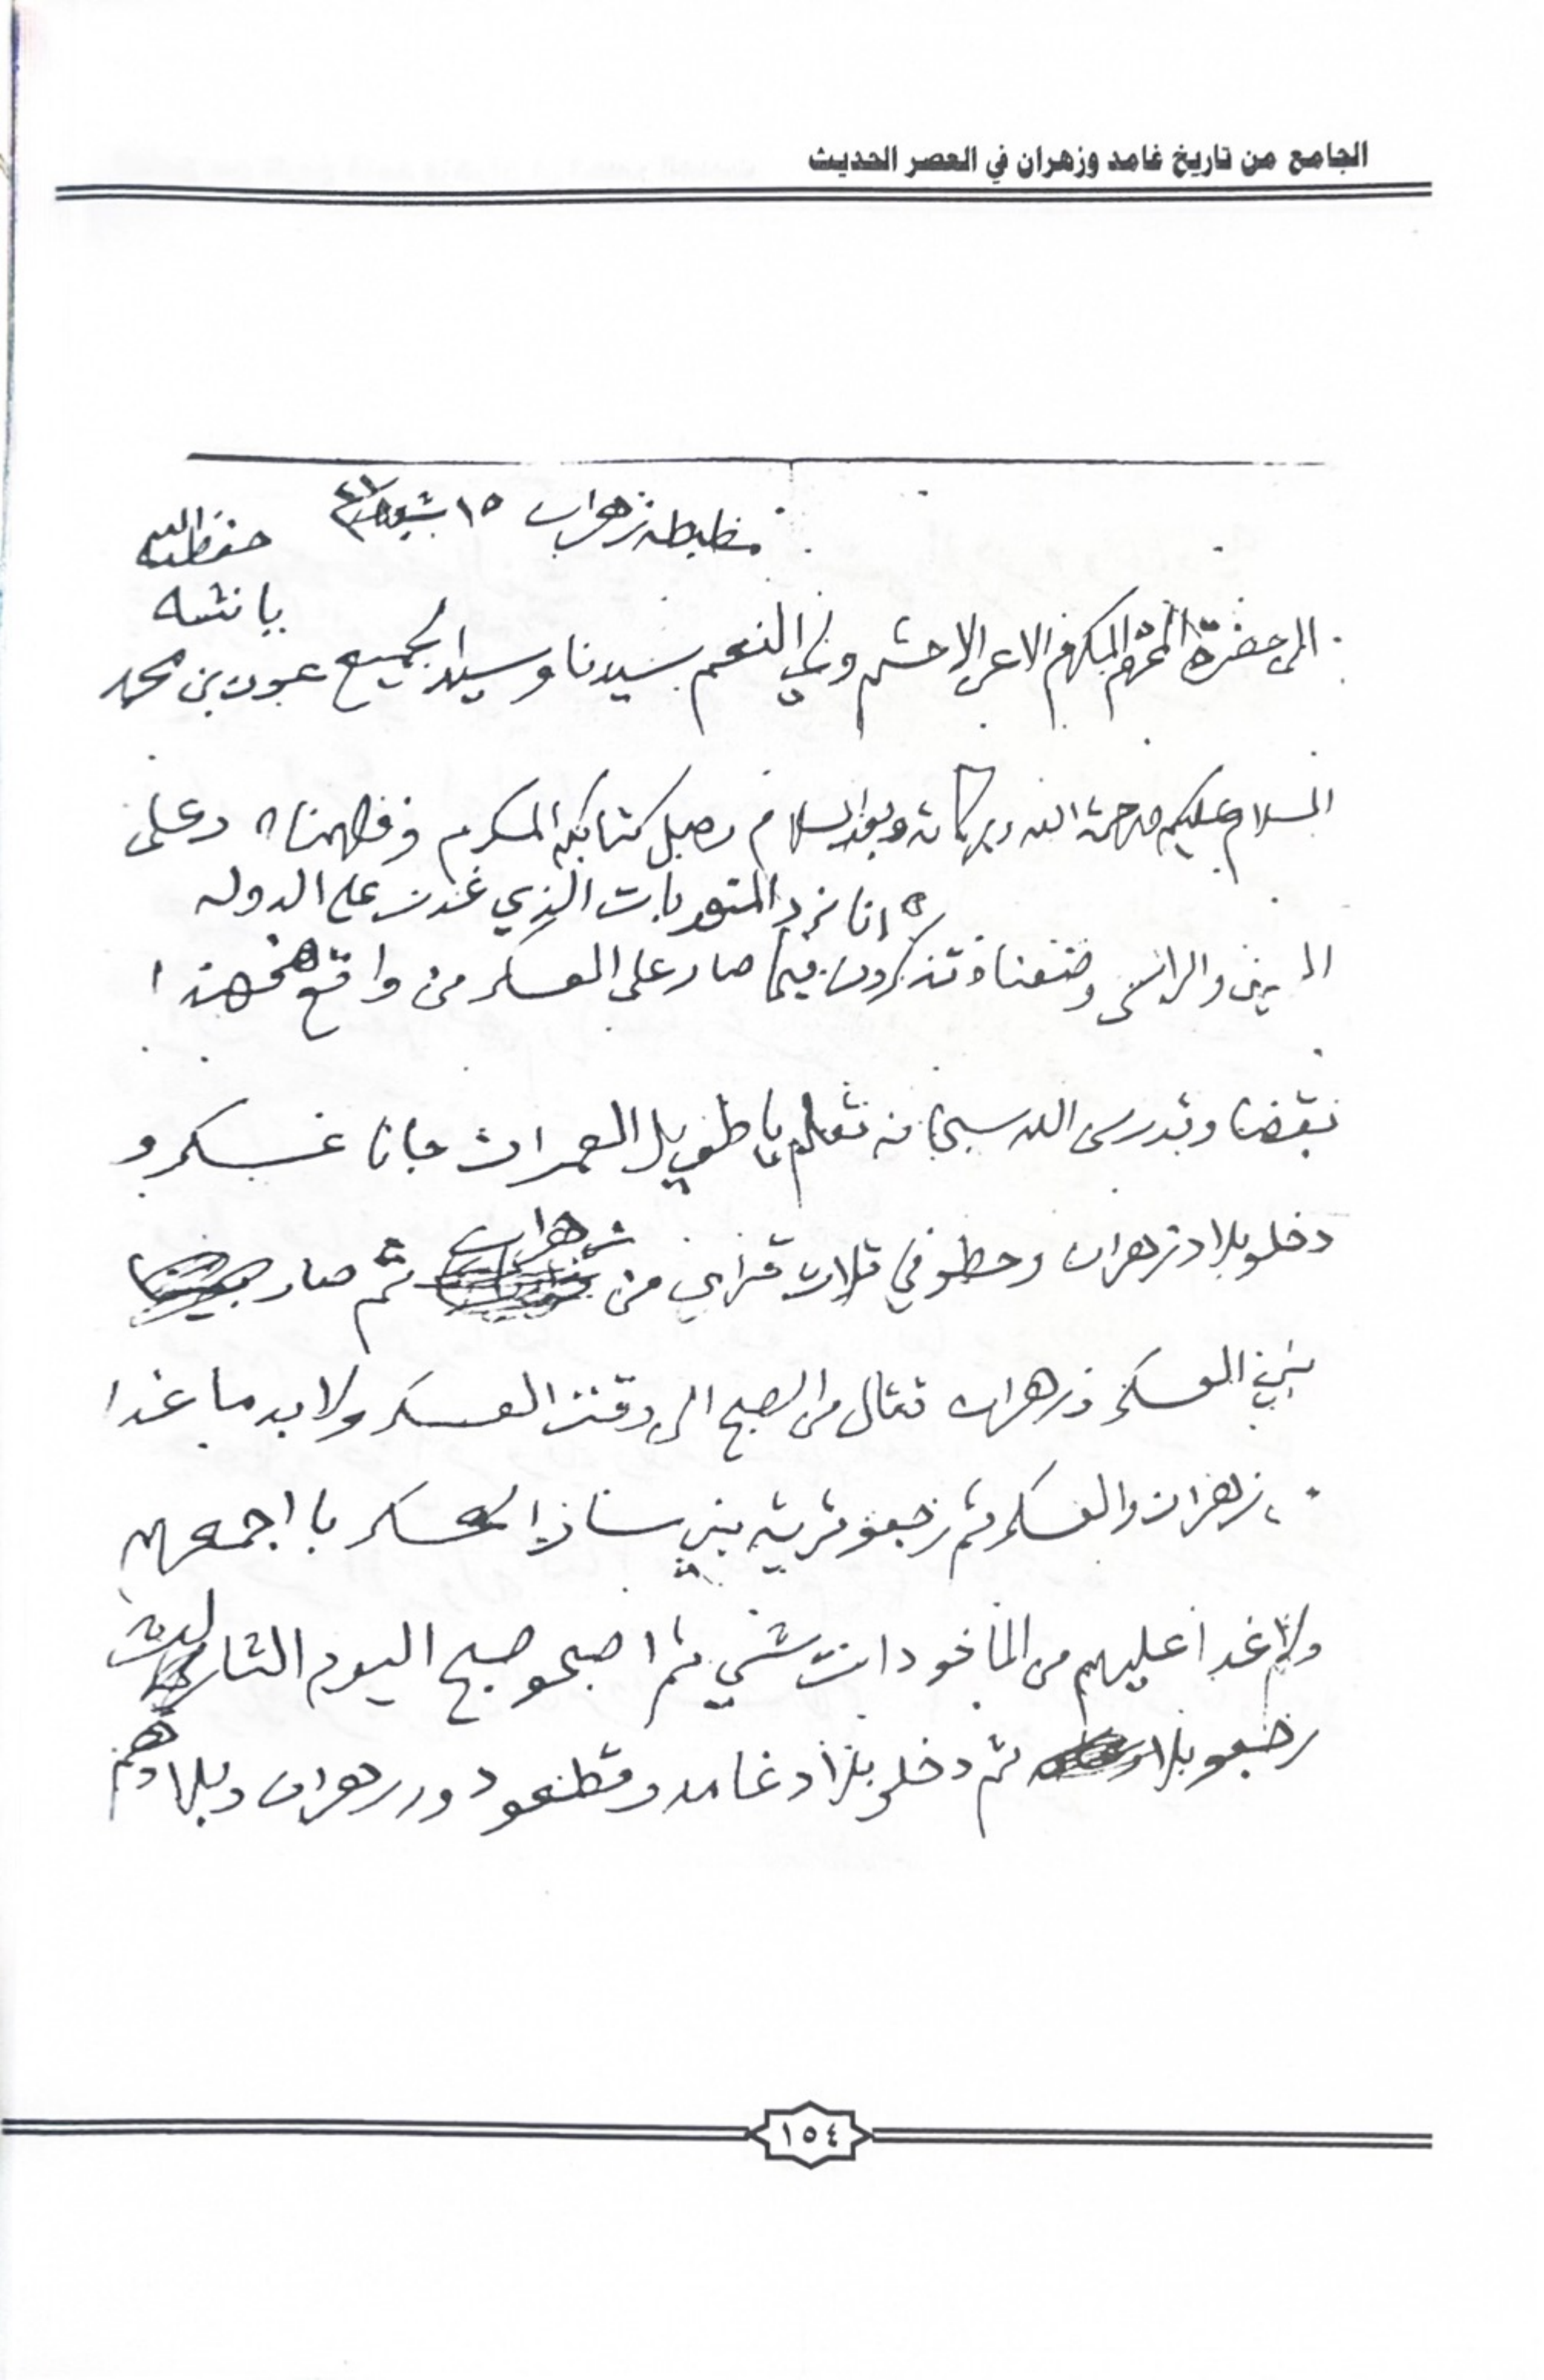 الجامع من تاريخ غامد وزهران في العصر الحديث
مظبطه زهران ١٥ شعبان
حفظه الله
باشه
الى حضرة المكرم الاعز الاحشم ولي النعم سيدنا وسيد الجميع عون بن محمد
السلام عليكم ورحمة الله وبركاته وبعد السلام وصل كتابكم المكرم وفهمناه وعلى
انا نرد المنهوبات الذي غدت على الدوله
العين والراس وضعناه تذكرون فيما صار على العسكر من واقع فهذا
نقضا وقدرى الله سبحانه تعلم يا طويل العمر ان جانا عسكر و
دخلو بلاد زهران وحطو في ثلاث قراى من زهران ثم صار
بين العسكر وزهران قتال من الصبح الى العسكر ولا بد ما غدا
زهران والعسكر ثم رجعو قرية بني العسكر با اجمعهم
ولا غدا عليهم من الماخودات شي ثم اصبحو صبح اليوم الثالث
رجعو بلاد ثم دخلو بلاد غامد وقطعو دور زهران وبلادهم
١٥٤